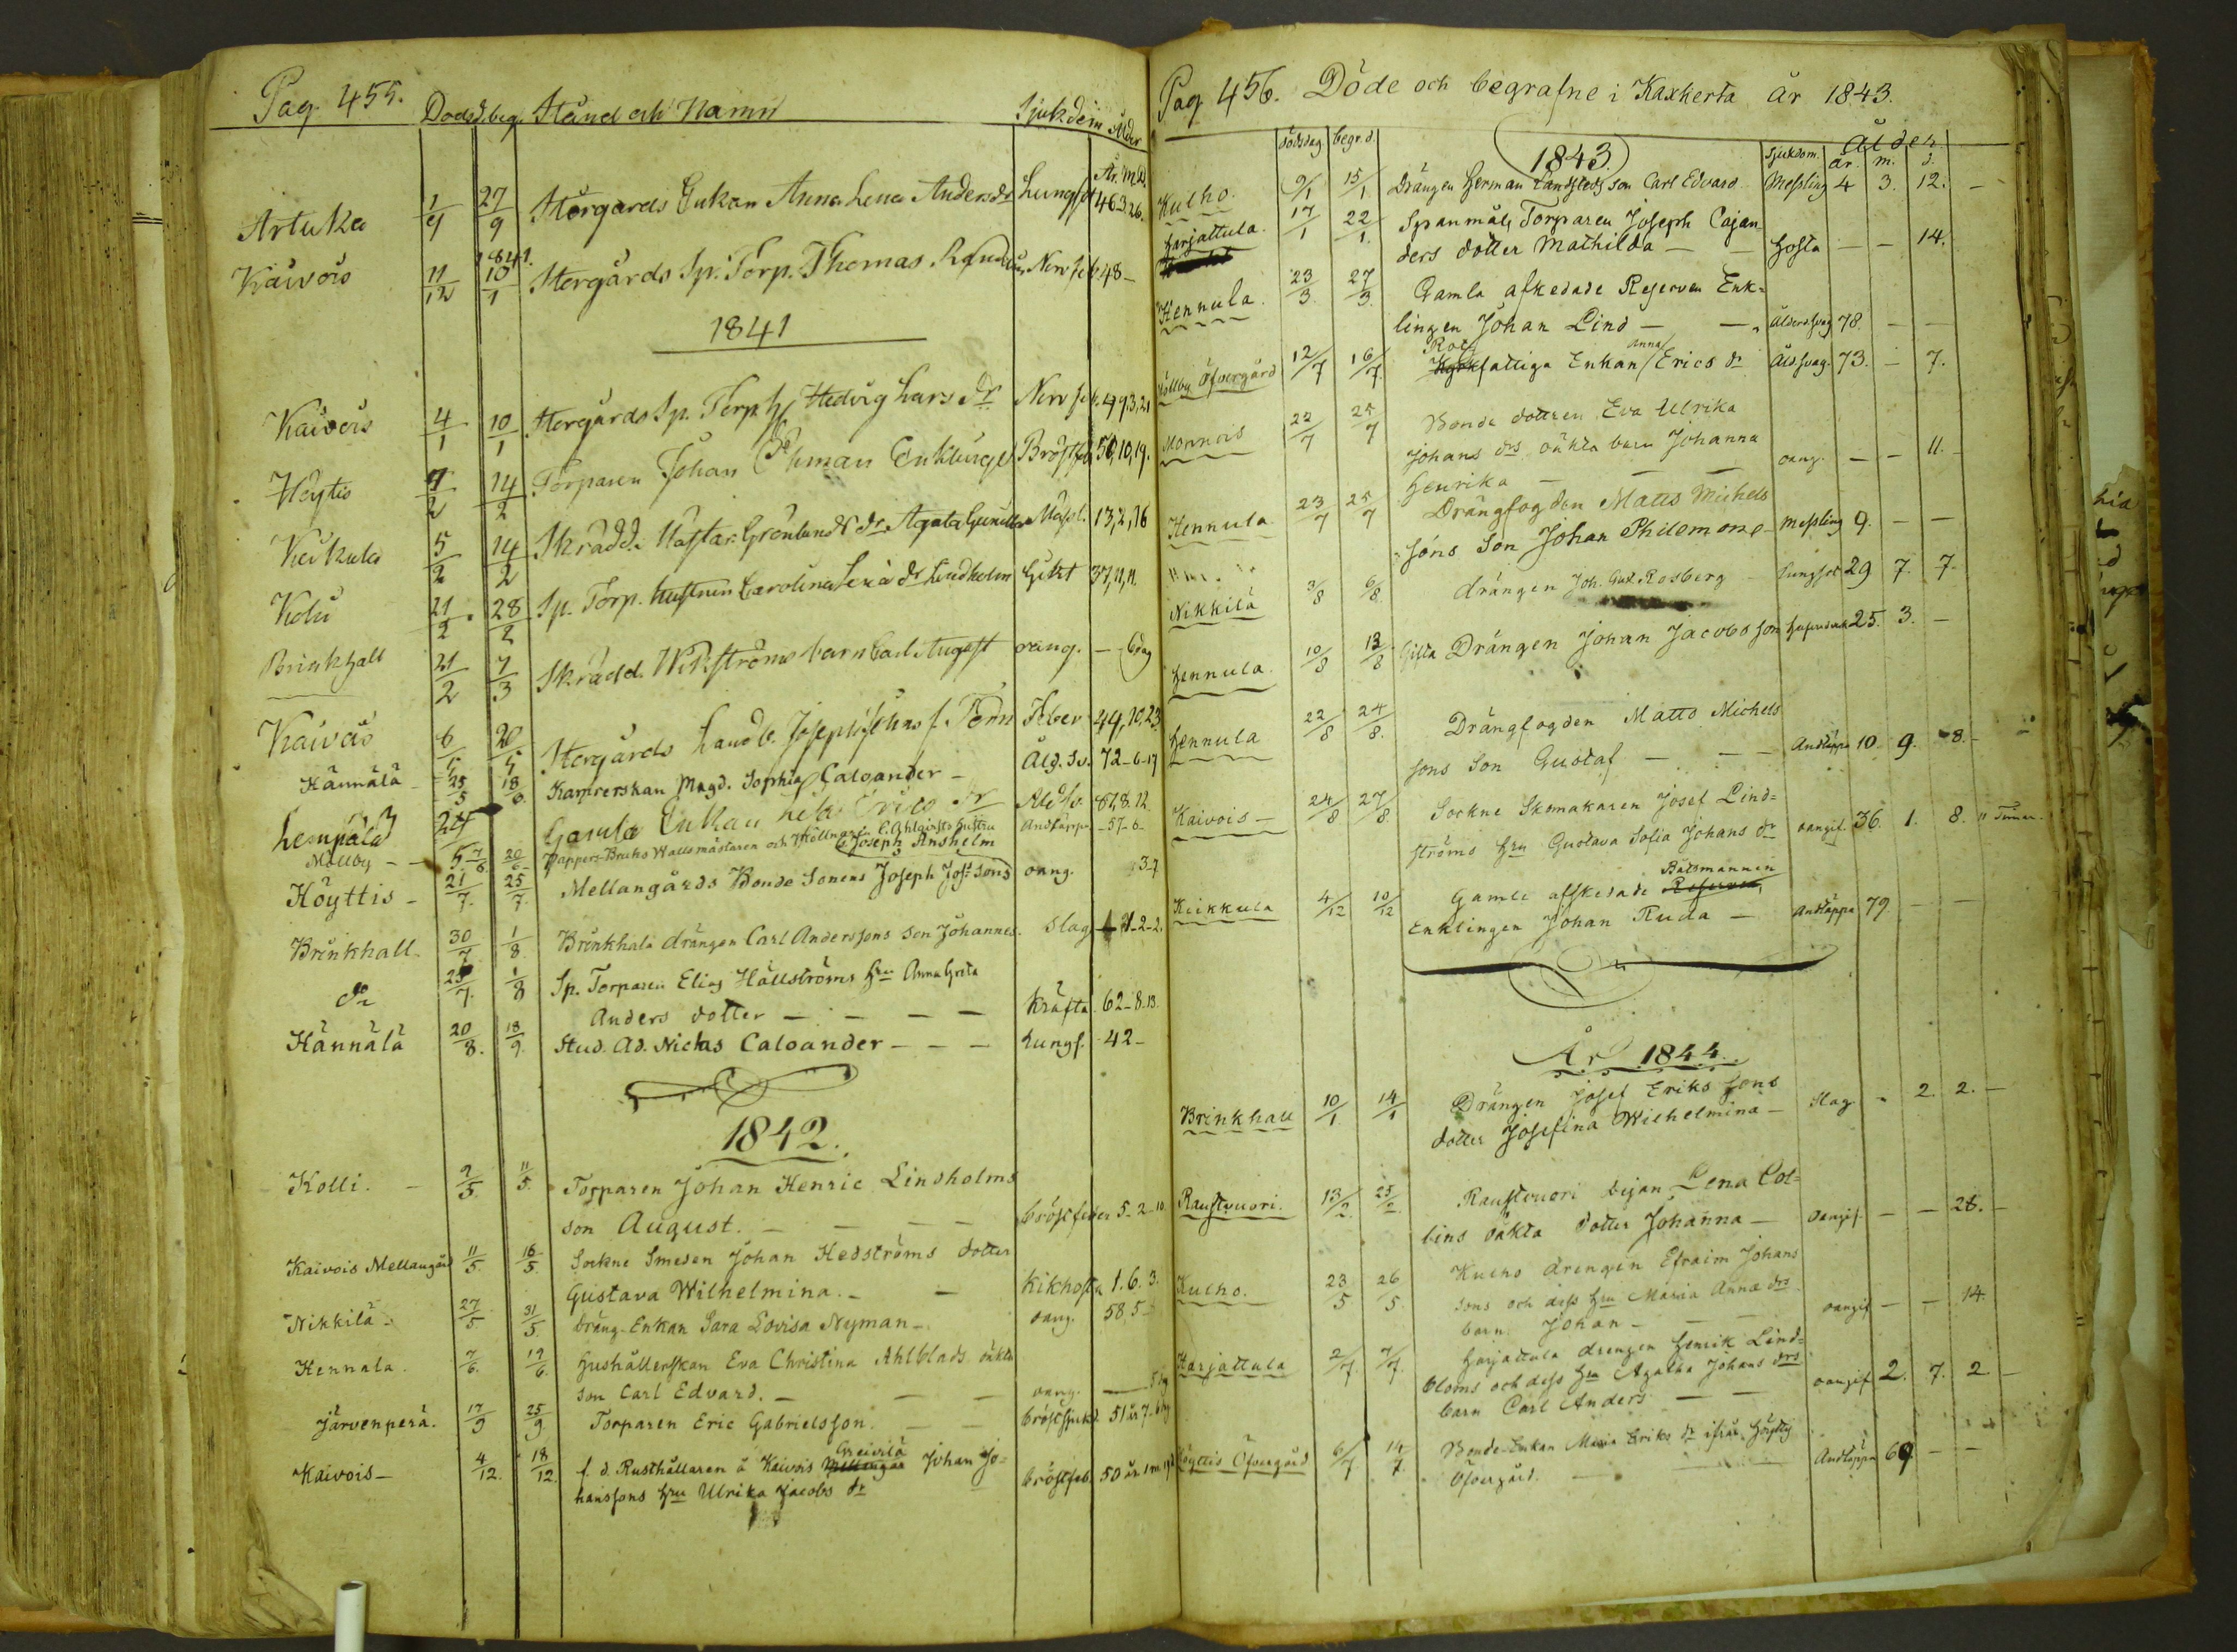 Pag. 455.
Dödsd. beg. Stånd och Namn Sjukdom Ålder
År. M. D.
Artuka 1/9 27/9 Storgårds Enkan Anna Lena Andersdr Lungsot 46 3. 26.
1841.
Kaivois 11/12 10/1 Storgårds Sp. Torp. Thomas Nerv feb. 48 –
1841
Kaivois 4/1 10/1 Storgårds Sp. Torp. Hedvig Lars dr Nerv feb. 49, 3, 21
Höytis 7/2 14/2 Torparen Johan Öhman Enklinge Bröstfeb 50, 10, 19.
Keikula 5/2 14/2 Skrädd. Gustav Grönlunds dr Agata Gunilla Mässl. 13, 2, 16
Kolu 21/2 28/2 Sp. Torp. Hustrun Carolina Lexa dr Lindholm Gikt 37, 11, 11.
Brinkhall 21/2 7/3 Skrädd. Wikströms barn Carl August oang. – – 6 dag
Kaivois 6/5 20/5 Storgårds Landb. Joseph Johns s. Feber 44, 10, 23
Kännälä – 25/5 18/6. Kamrerskan Magd. Sophia Caloander – Ålд. Sv. 72 – 6 – 17
Lempälä 24/5 Gamla Enkan Erics dr Åld Sv. 87. 8. 12.
Mällby – – 7/6. 20/6 Pappers-Bruks Wallsmästaren och Möllnaren C. Ahlqvists hustru Andtäppa – 57 – 6 –
C. Joseph Anshelm
Höyttis – 21/7. 25/7. Mellangårds Bonde Sonens Joseph Jos. sons oang. 3. 7
Brinkhall. 30/7. 1/8. Brinkhala drängen Carl Anderssons Son Johannes. Slag 1 – 2 – 2.
do 25/7. 1/8 Sp. Torparen Elias Hällströms Hru Anna Greta
Anders dotter – – – – Kräfta. 62 – 8. 13.
Hännälä 20/8. 18/9. Stud. Ad. Niclas Caloander – – – Lungs. 42 –
1842.
Kolli. – 9/5. 11/5. Torparen Johan Henric Lindholms
son August. – – – – bröstfeber 5 – 2 – 10.
Kaivois Mellangård 11/5. 16/5. Sockne Smeden Johan Hedströms dotter
Gustava Wilhelmina. – – Kikhosta 1. 6. 3.
Nikkilä – 27/5. 31/5. dräng-Enkan Sara Lovisa Nyman – oang. 58. 5 –
Hennala. 7/6. 19/6. Hushållerskan Eva Christina Ahlblads oäkta
son Carl Edvard. – – – oang. –– 5 dg
Järvenperä. 17/9 25/9 Torparen Eric Gabrielsson. – – bröstsjukd. 51 år 7 – 6 dg
Kaivois – 4/12. 18/12. f. d. Rusthållaren å Kaivois Mellangå Johan Jo=
hanssons Hru Ulrika Jacobs dr bröstfeb. 50 år 1 m 19 d
Pag 456. Döde och begrafne i Kaxkerta år 1843.
dödsdag. begr. d. 1843. Sjukdom. Ålder
år. m. d.
Kulho. 9/1 15/1 Drängen Herman Landsteds son Carl Edvard. Messling 4 3. 12. –
Harjattula. 17/1 22/1. Spanmåls Torparen Joseph Cajan
ders dotter Mathilda – – Hosta – – 14.
Hennula. 23/3. 27/3. Gamla afskedade Reserven Enk=
lingen Johan Lind – – Åldersvag 78. – –
Källby Öfvergård 12/7 16/7 Rote Kyrkfattiga Enkan Anna Erics dr Åldsvag. 73. – 7.
Monnois 22/7 25/7 Bonde dottren Eva Ulrika
Johans drs oäkta barn Johanna
Henrika – – – oang. – – 11. –
Hennula 23/7 25/7 Drängfogden Matts Michels
sóns Son Johan Philemon – Messling 9. – –
Nikkilä 3/8 6/8. drängen Joh. Gust. Rosberg – Lungsot 29 7. 7.
Hennula. 10/8 13/8 Gifta Drängen Johan Jacobs son 25. 3. –
Hennula 22/8 24/8. Drängfogden Matts Michels
sons Son Gustaf – – – Andtäppa 10. 9. 8. –
Kaivois – 24/8 27/8 Sockne Skomakaren Josef Lind=
ströms Hru Gustava Sofia Johans dr oangif. 36. 1. 8.
Keikkula 4/12 10/12 Gamle afskedade Båtsmannen Reserven
Enklingen Johan Ruda – Andtäppa 79 – –
År 1844.
Brinkhall 10/1. 14/1 Drängen Josef Erikssons
dotter Josefina Wilhelmina – Slag – 2. 2. –
Raustvuori. 13/2. 25/2. Raustvuori bijan Lena Col=
lins oäkta dotter Johanna – oangif. – – 28. –
Kulho. 23/5 26/5. Kulho drengen Efraim Johans
sons och dess Hru Maria Annæ drs
barn Johan – – – oangif – – 14.
Harjattula 2/7. 7/7. Harjattula drengen Henrik Lind=
bloms och dess Hru Agatha Johans drs
barn Carl Anders – – oangif 2. 7. 2. –
Höyttis Öfvergård 6/7 14/7. Bonde-Enkan Maria Eriks dr ifrån Höyttis
Öfvergård. – – Andtäppa 69 – –